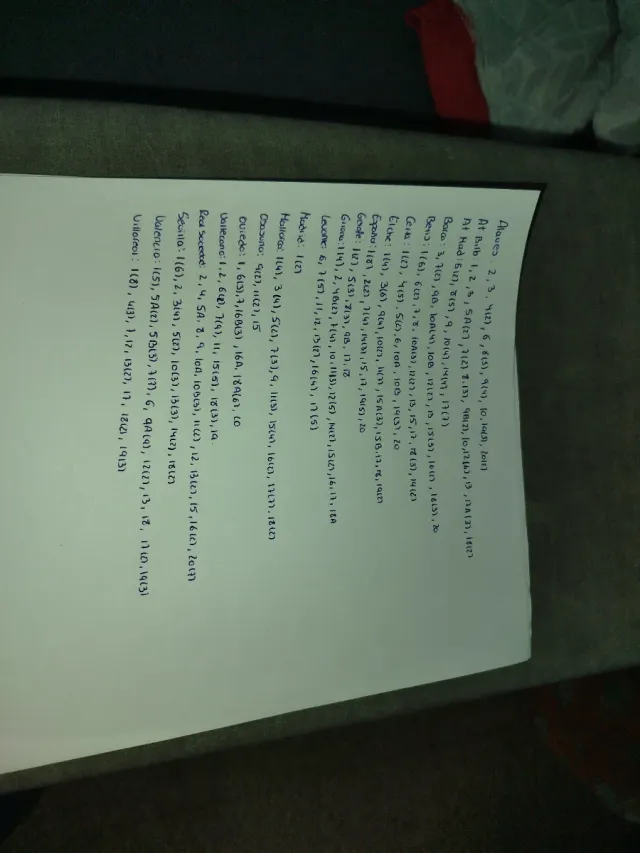 Alaves 2, 3, 4(2), 6, 8(3), 9(4), 10, 14(3), 20(2)
At Bilb 1, 2, 3, 5A(2), 7(2)
At Mad: 6(2), 8(5), 9, 10(4), 14(4), 17(7)
Barca: 3, 7(2), 9B, 10A(4), 10B, 12(2), 13, 15(3), 16(2), 18(3), 20
Betis: 1(6), 6(2), 7, 8, 10A(3), 12(2), 13, 15, 17, 18(3), 19(2)
Celta: 1(2), 4(5), 5(2), 6, 10A, 10B, 14(3), 20
Elche: 1(4), 3(6), 9(4), 10(2), 14(7), 15A(3), 15B, 17, 18, 19(2)
Español: 1(8), 2(2), 7(4), 14(3), 15, 17, 19(5), 20
Getafe: 1(2), 5(3), 8(3), 9B, 17, 18
Girona: 1(4), 2, 4B(2), 7(4), 10, 11(3), 12(5), 14(2), 15(2), 16, 17, 18A
Levante: 6, 7(5), 11, 12, 13(2), 16(4), 17(5)
Madrid: 1(2)
Mallorca: 1(4), 3(4), 5(2), 7(3), 9, 11(3), 15(4), 16(2), 17(7), 18(2)
Osasuna: 9(2), 11(2), 15
Oviedo: 1, 6(5), 7, 16B(3), 16A, 18A(6), 20
Vallecano: 1, 2, 6(8), 7(4), 11, 15(5), 18(3), 19
Real Sociedad: 2, 4, 5A, 8, 9, 10A, 10B(3), 11(2), 12, 13(2), 15, 16(2), 20(7)
Sevilla: 1(6), 2, 3(4), 5(2), 10(3), 13(3), 14(2), 18(2)
Valencia: 1(5), 5A(2), 5B(3), 7(7), 6, 9A(4), 12(2), 13, 18, 17(2), 19(3)
Villareal: 1(8), 4(3), 7, 12, 13(2), 17, 18(2), 19(3)